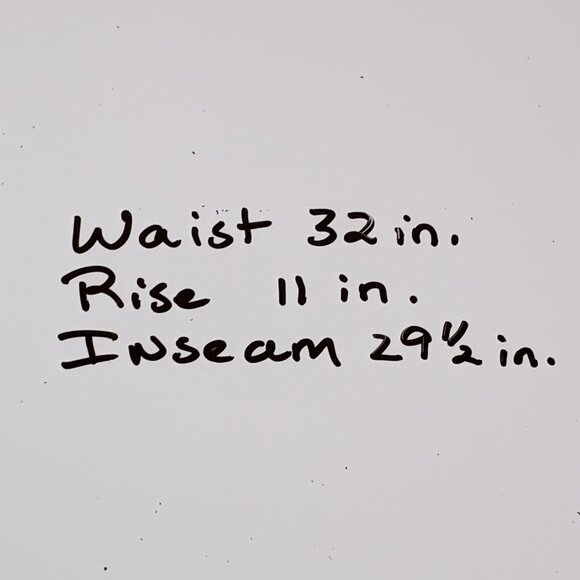 Waist 32 in.
Rise 11 in.
Inseam 29 1/2 in.